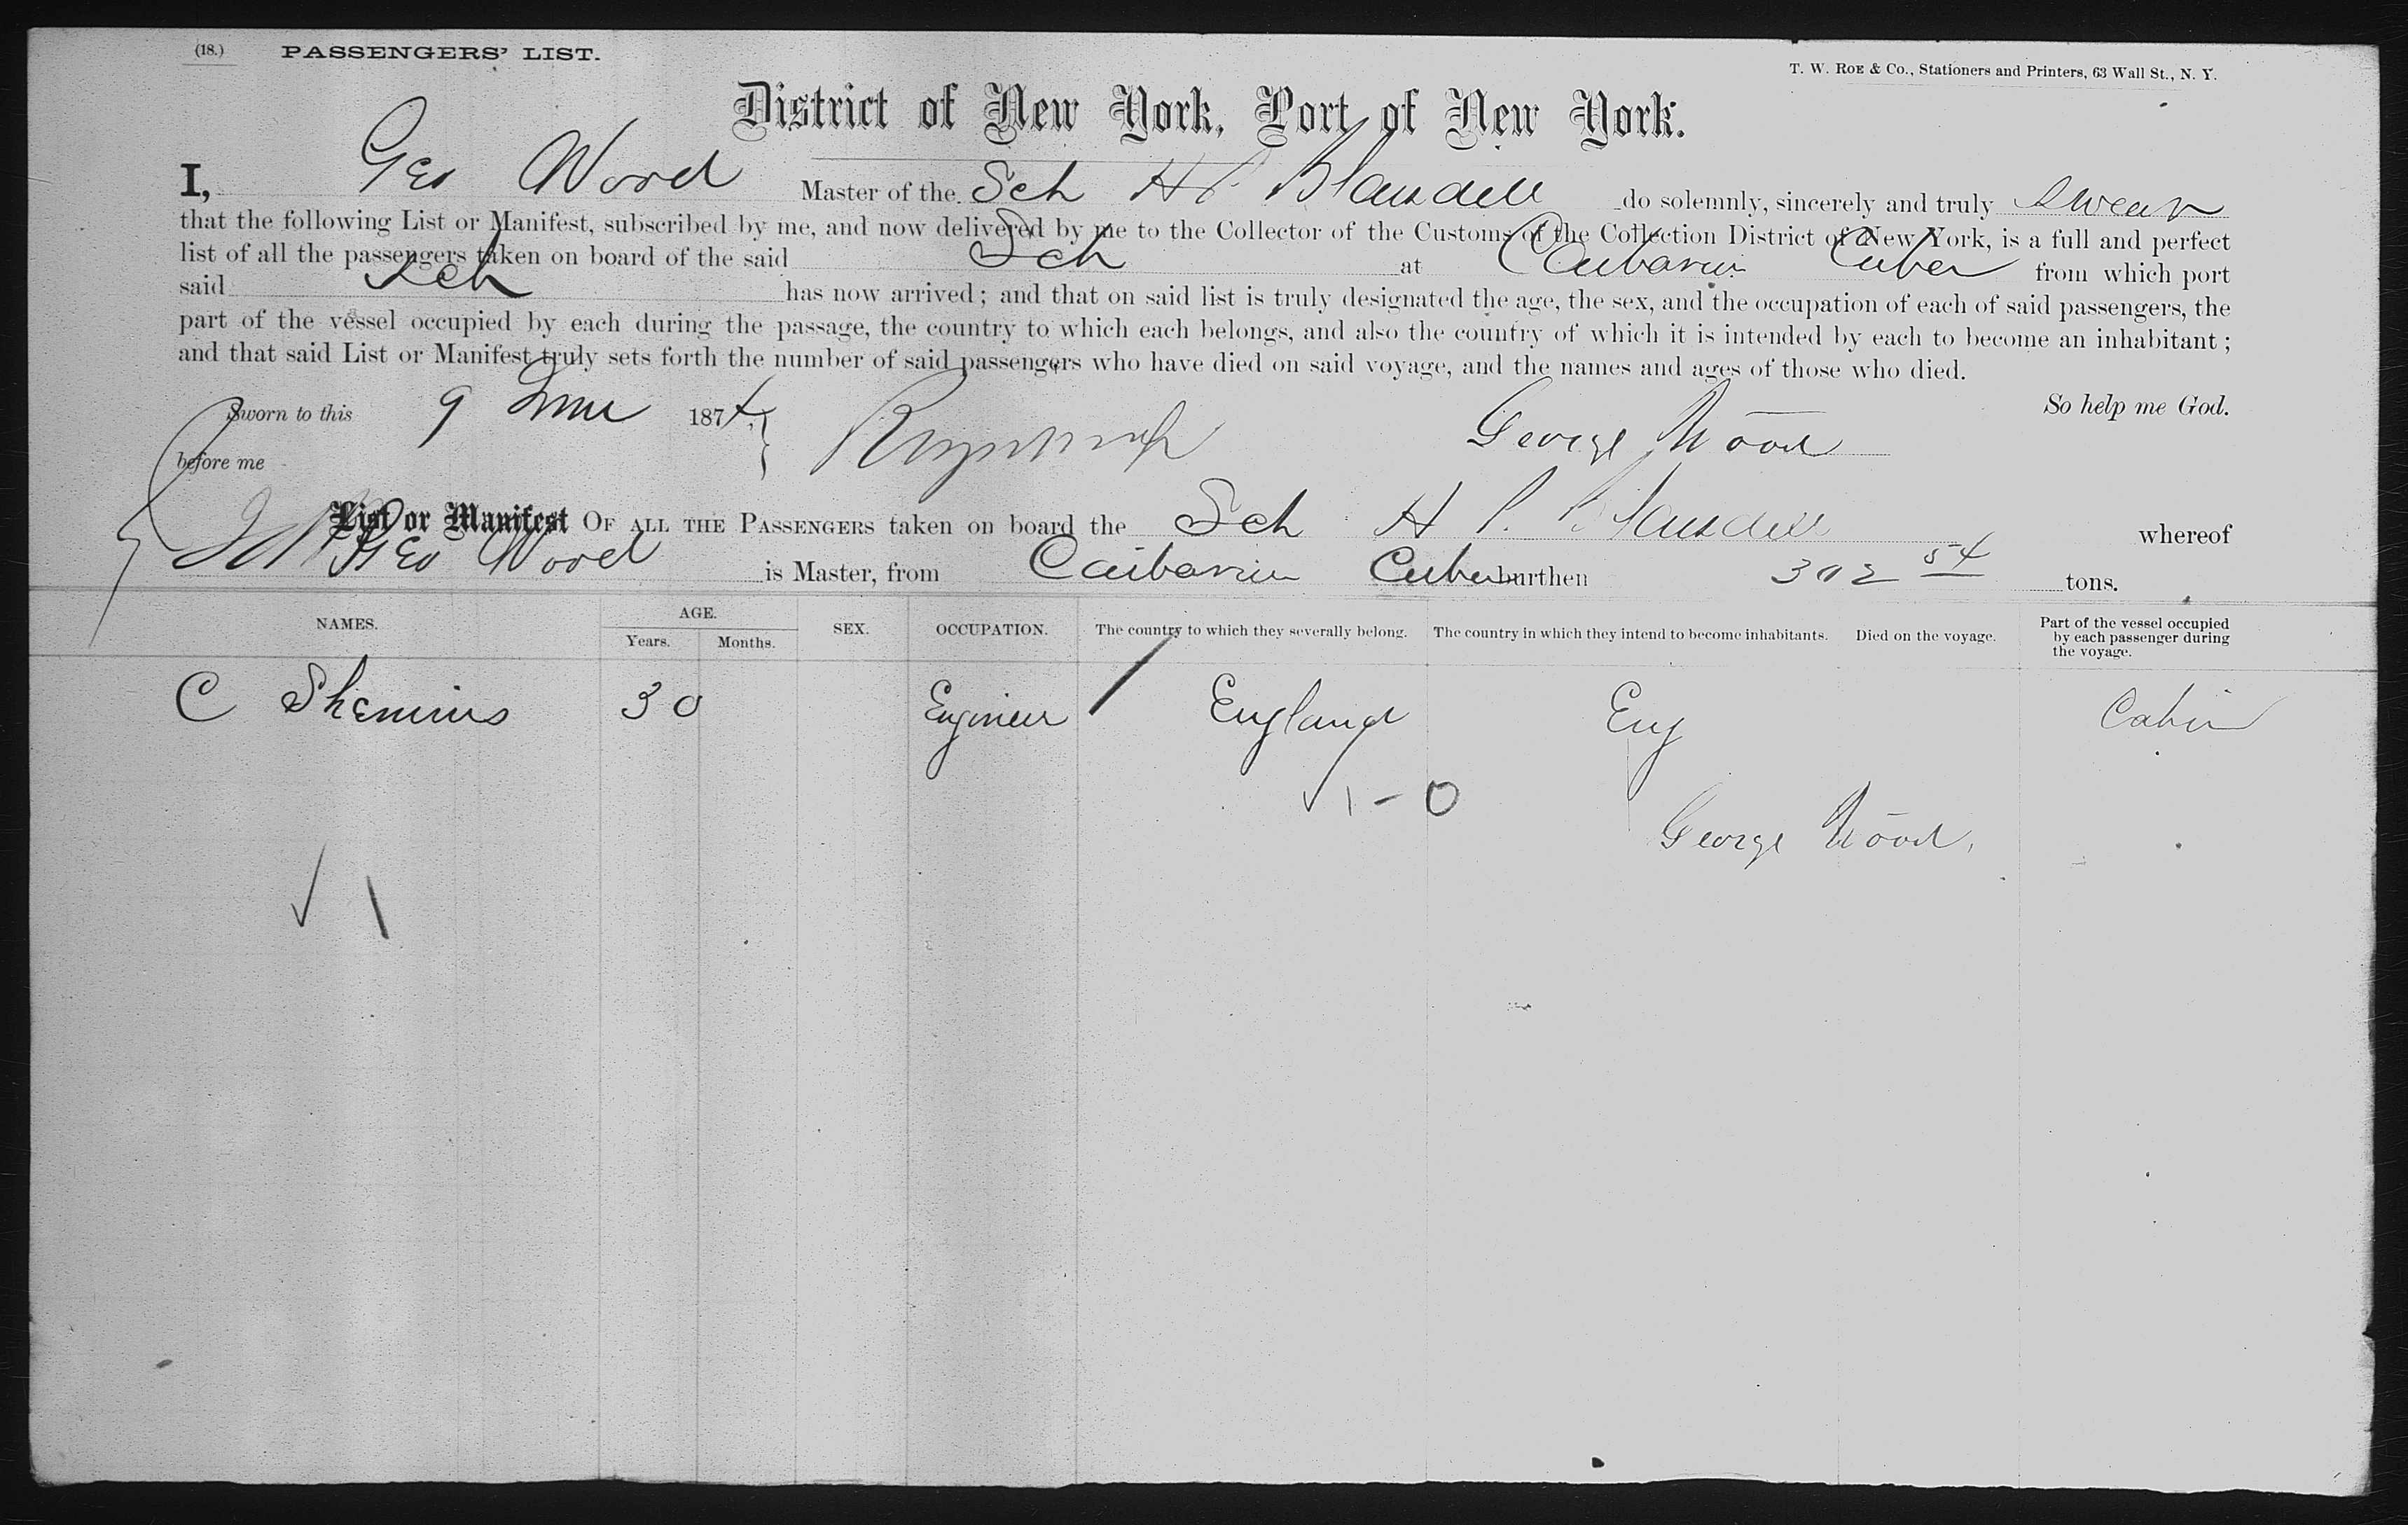 (18.) PASSENGERS' LIST.
T. W. ROE & Co., Stationers and Printers, 63 Wall St., N. Y.
District of New York, Port of New York.
I, Geo Wood Master of the Sch H P. Blaisdell do solemnly, sincerely and truly swear
that the following List or Manifest, subscribed by me, and now delivered by me to the Collector of the Customs of the Collection District of New York, is a full and perfect
list of all the passengers taken on board of the said Sch at Caibarien Cuba from which port
said Sch has now arrived; and that on said list is truly designated the age, the sex, and the occupation of each of said passengers, the
part of the vessel occupied by each during the passage, the country to which each belongs, and also the country of which it is intended by each to become an inhabitant;
and that said List or Manifest truly sets forth the number of said passengers who have died on said voyage, and the names and ages of those who died.
So help me God.
Sworn to this 9 June 1874,
George Wood
before me
List or Manifest OF ALL THE PASSENGERS taken on board the Sch H P. Blaisdell whereof
Geo Wood is Master, from Caibarien Cuba burthen 302 54 tons.
NAMES. AGE. Years. Months. SEX. OCCUPATION. The country to which they severally belong. The country in which they intend to become inhabitants. Died on the voyage. Part of the vessel occupied by each passenger during the voyage.
C 30 Engineer England Eng Cabin
√ 1 - 0
George Wood.
√ 1